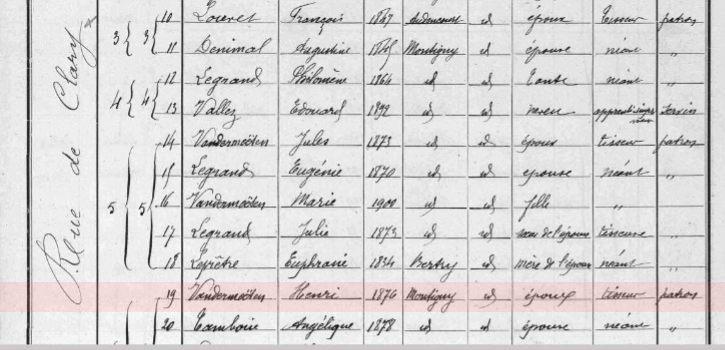 Rue de Clary
3 3 10 Louvet François 1847 id époux tisseur patron
11 Denimal Augustine 1845 Montigny id épouse néant "
12 Legrand Philomène 1864 id id tante néant "
4 4 13 Vallez Edouard 1892 id id neveu apprenti
14 Vandermeöten Jules 1873 id id époux tisseur patron
15 Legrand Eugénie 1870 id id épouse néant "
5 5 16 Vandermeöten Marie 1900 id id fille "
17 Legrand Julie 1873 id id sœur de l'épouse tisseuse "
18 Leprêtre Euphrasie 1834 Bertry id mère de l'épouse néant "
19 Vandermeöten Henri 1876 Montigny id époux tisseur patron
20 Tamboise Angélique 1878 id id épouse néant "